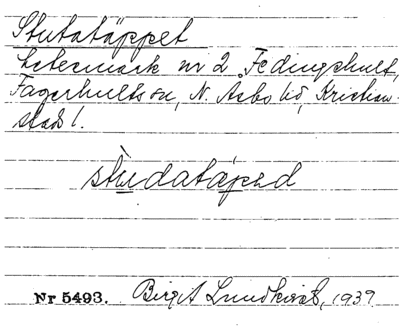 Stutatäppet
hetesmark nr 2 Fedingshult,
Fagerhults sn, N. Åsbo hd, Kristian-
stads l.
stùdatäped
Nr 5493. Birgit Lundkvist, 1937